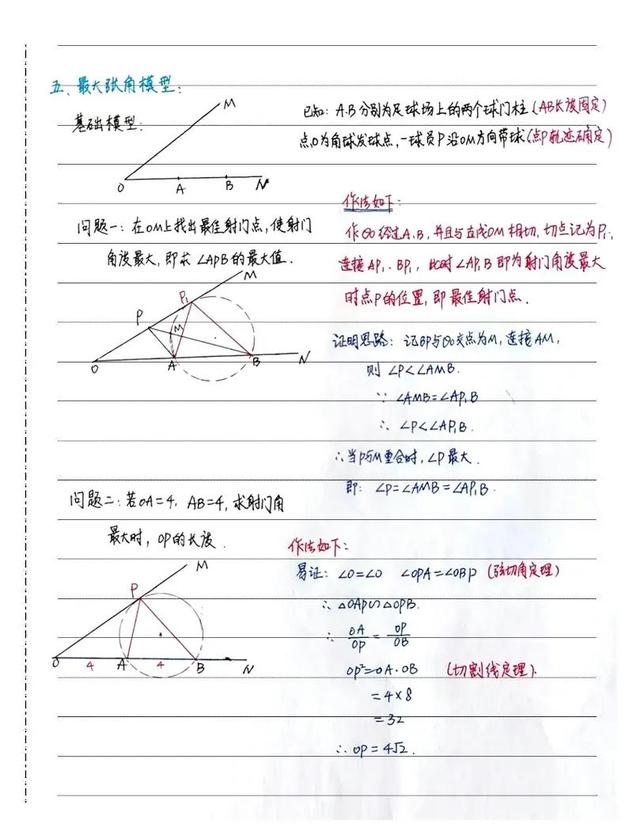 五、最大张角模型:
基础模型:
M
O A B N
已知: A.B分别为足球场上的两个球门柱(AB长度固定)
点O为角球发球点,一球员P沿OM方向带球(点P轨迹确定)
问题一: 在OM上找出最佳射门点,使射门
角度最大,即求∠APB的最大值.
M
P₁
P
M
O A B N
作法如下:
作⊙O经过A.B,并且与直线OM相切,切点记为P₁,
连接AP₁、BP₁, 此时∠AP₁B即为射门角度最大
时点P的位置,即最佳射门点.
证明思路: 记BP与⊙O交点为M,连接AM,
则 ∠P<∠AMB.
∵ ∠AMB=∠AP₁B
∴ ∠P<∠AP₁B.
∴当P与M重合时,∠P最大.
即: ∠P=∠AMB=∠AP₁B.
问题二: 若OA=4, AB=4,求射门角
最大时, OP的长度.
M
P
O 4 A 4 B N
作法如下:
易证: ∠O=∠O ∠OPA=∠OBP (弦切角定理)
∴ △OAP∽△OPB.
∴ OA/OP = OP/OB
OP²=OA·OB (切割线定理).
=4×8
=32
∴ OP=4√2.